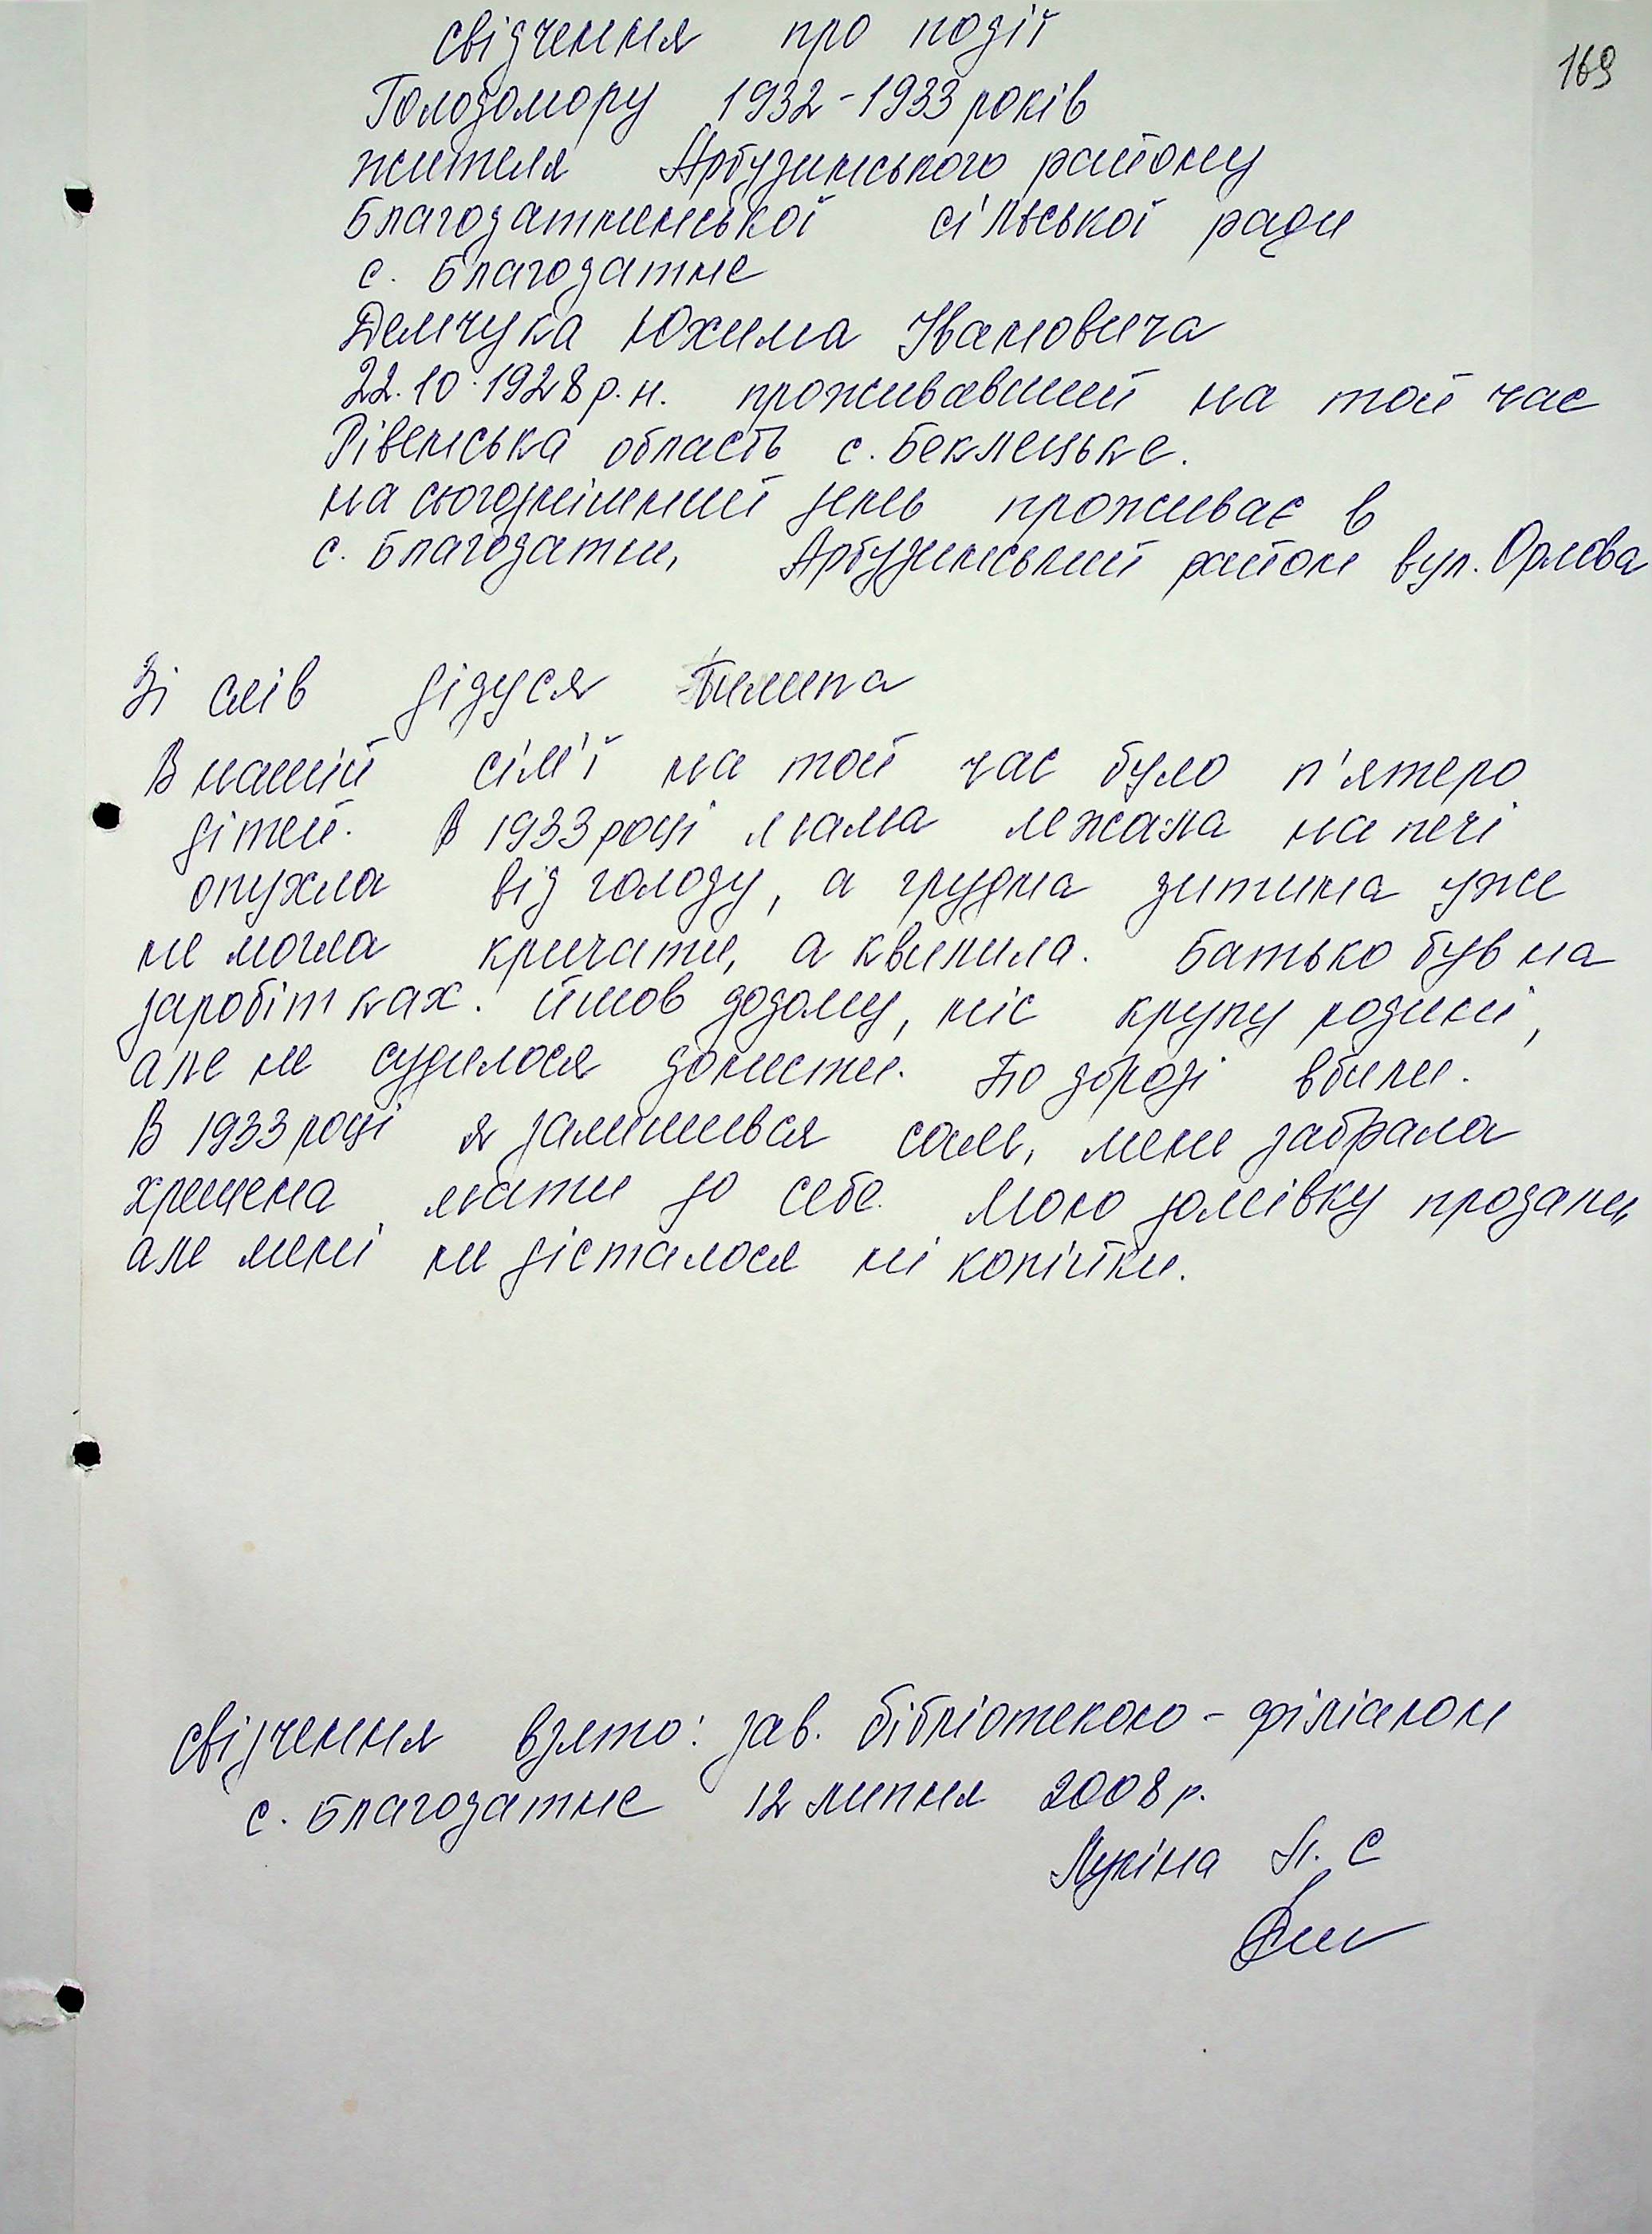 169
свідчення про події
Голодомору 1932-1933 років
жителя Арбузинського району
Благодатненської сільської ради
с. Благодатне
Демчука Юхима Івановича
22.10.1928 р.н. проживавший на той час
Рівенська область с.
на сьогоднішний день проживає в
с. Благодатни, Арбузинський район вул. Орлова
Зі слів дідуся Пилипа
В нашій сім'ї на той час було п'ятеро
дітей. В 1933 році мама лежала на печі
опухла від голоду, а грудна дитина уже
не могла кричати, а квилила. Батько був на
заробітках. Йшов додому, ніс крупу родині,
але не судилося донести. По дорозі вбили.
В 1933 році я залишився сам, мене забрала
хрещена мати до себе. Мою домівку продали,
але мені не дісталося ні копійки.
свідчення взято: зав. бібліотекою - філіалом
с. Благодатне 12 липня 2008 р.
Лукіна Л. С